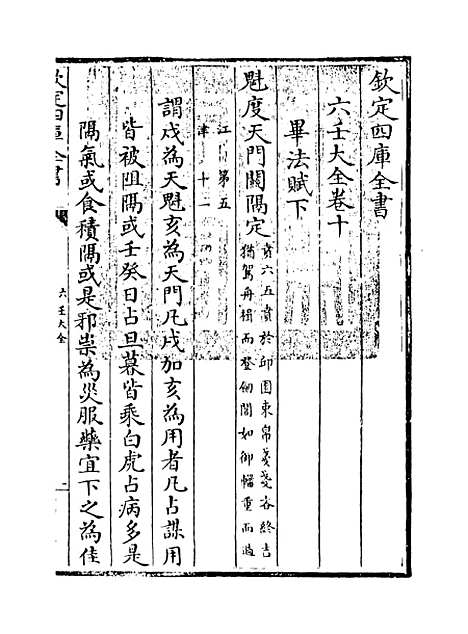 欽定四庫全書
六壬大全卷十
畢法賦下
魁度天門關隔定
賁六五賁於邱園束帛戔戔吝終吉
猶駕舟楫而登
閫如御輜重而
江 第五
津 十一
謂戌為天魁亥為天門凡戌加亥為用者凡占謀用
皆被阻隔或壬癸日占旦暮皆乘白虎占病多是
隔氣或食積隔或是邪祟為災服藥宜下之為佳
欽定四庫全書
六壬大全